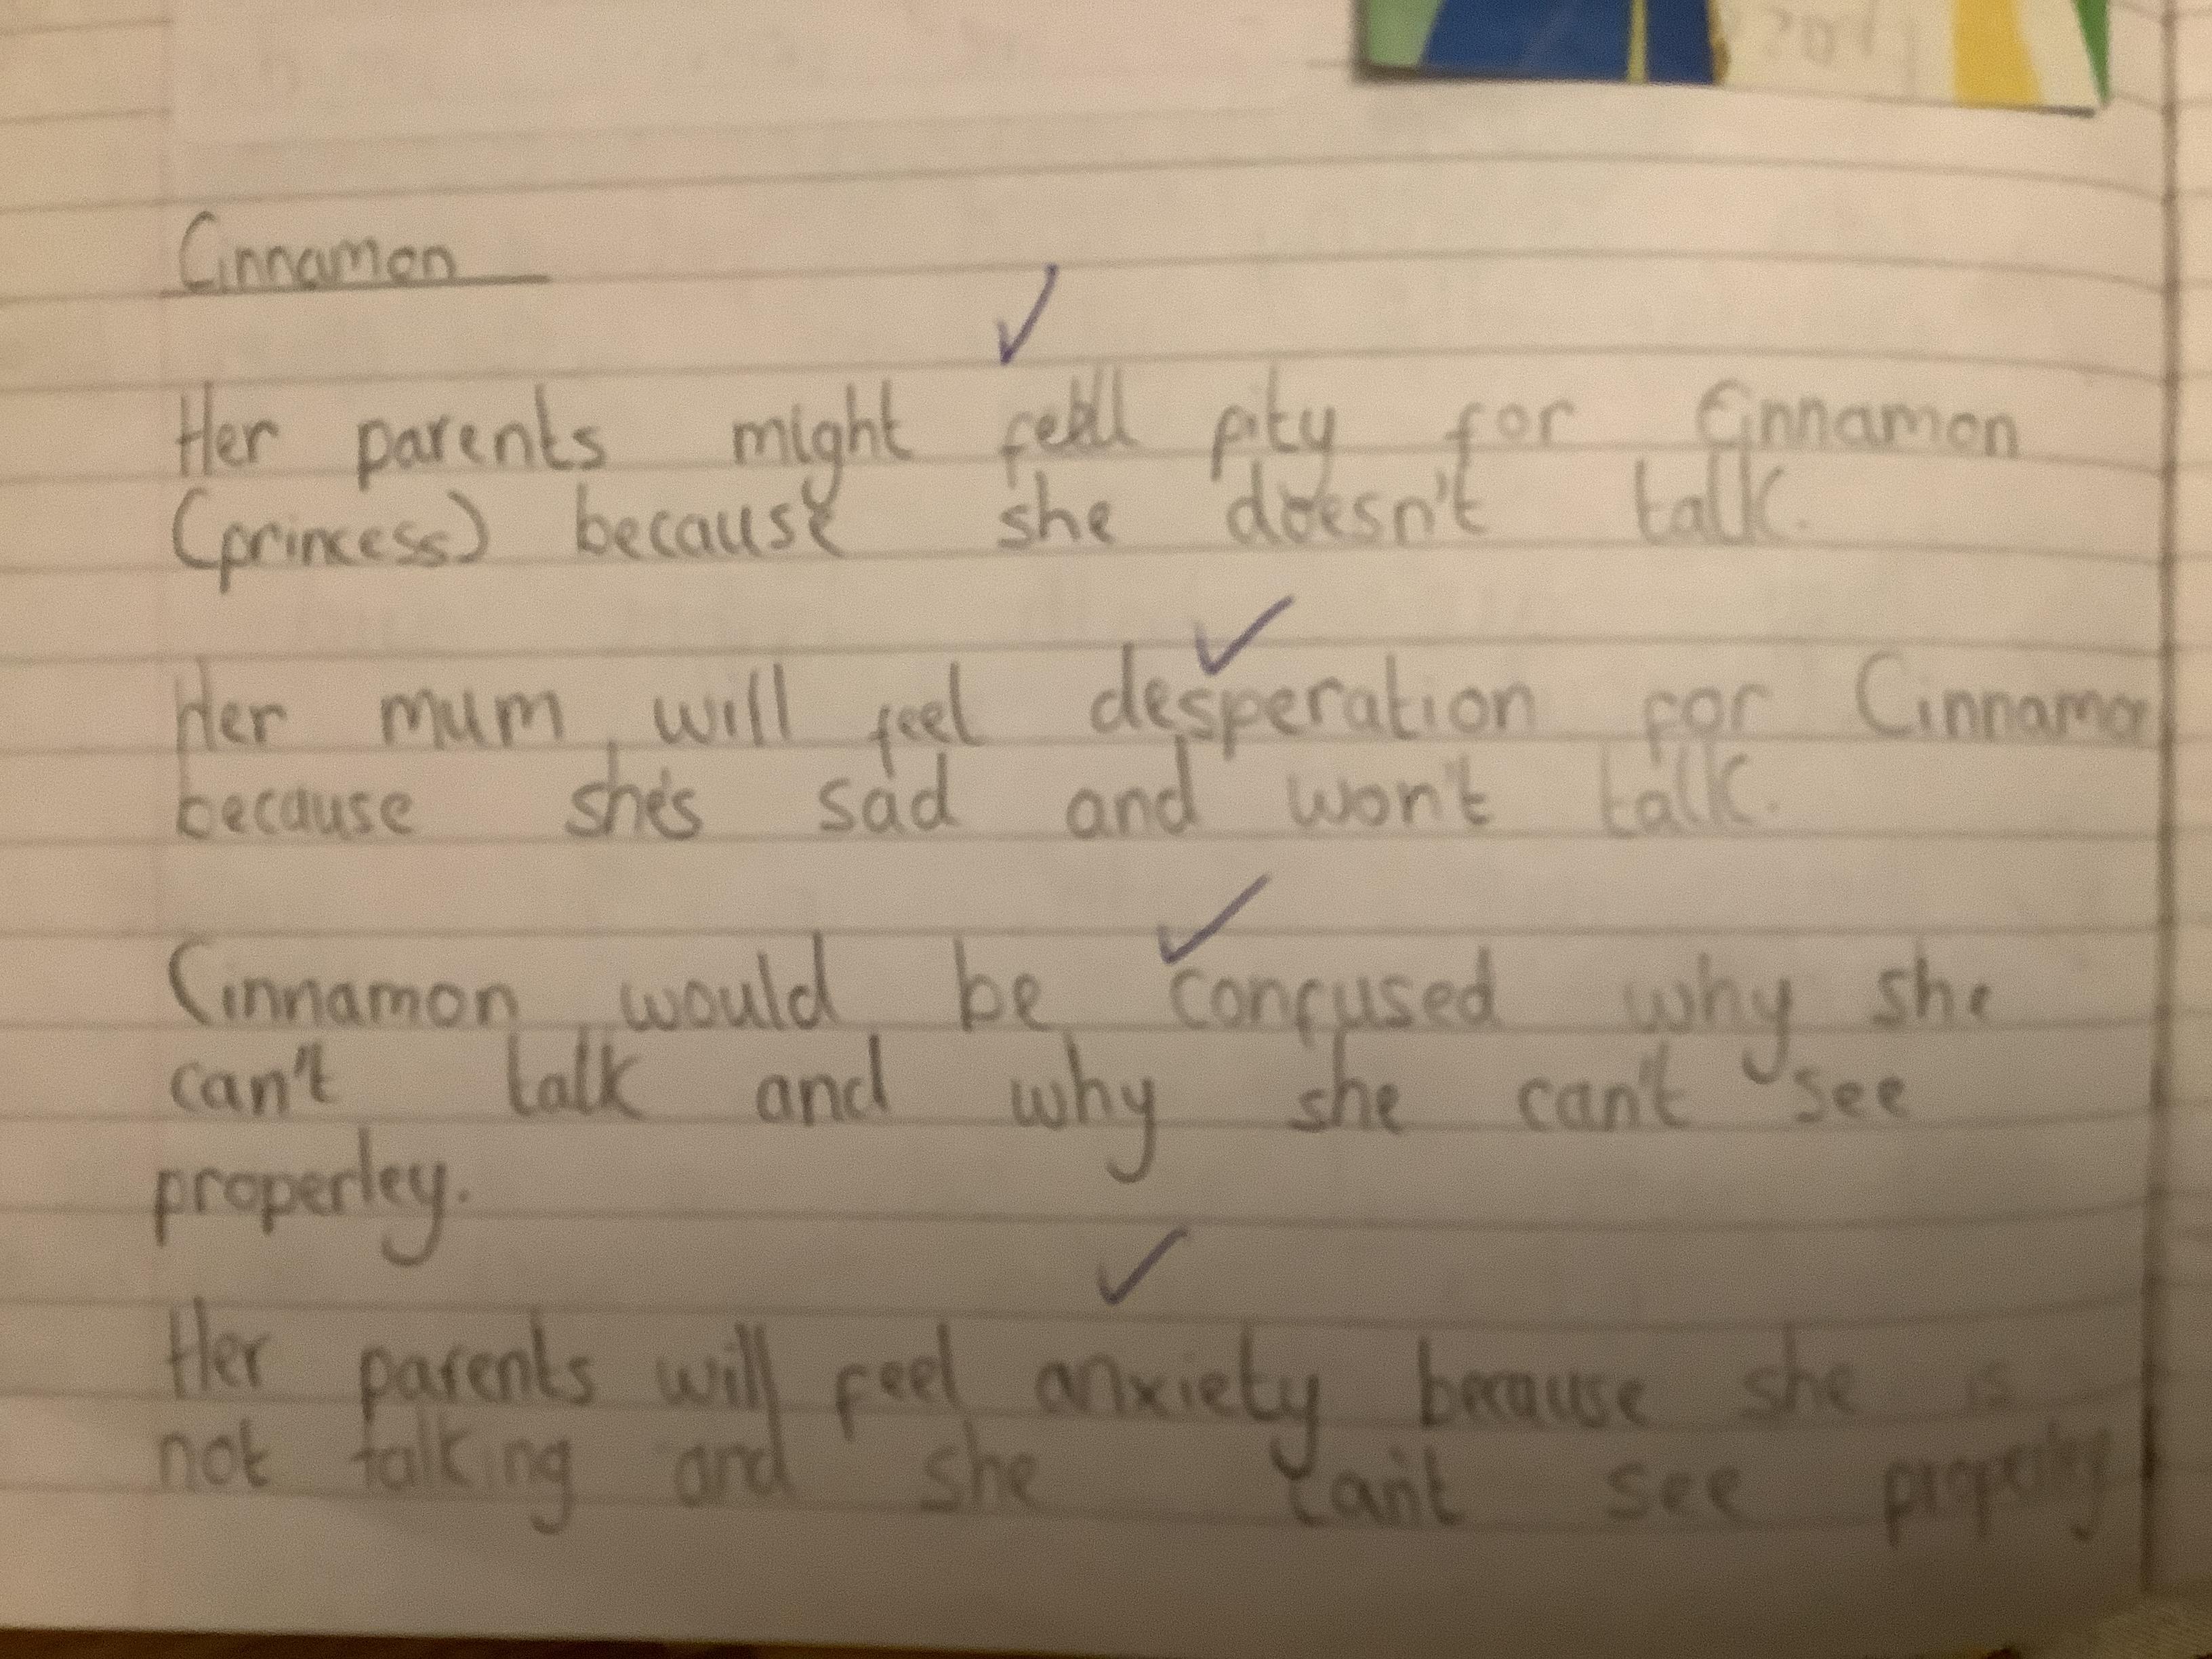 Cinnamon
Her parents might feel pity for Cinnamon
(princess) because she doesn't talk.
Her mum will feel desperation for Cinnamon
because she's sad and won't talk.
Cinnamon would be confused why she
can't talk and why she can't see
properley.
Her parents will feel anxiety because she is
not talking and she can't see properley